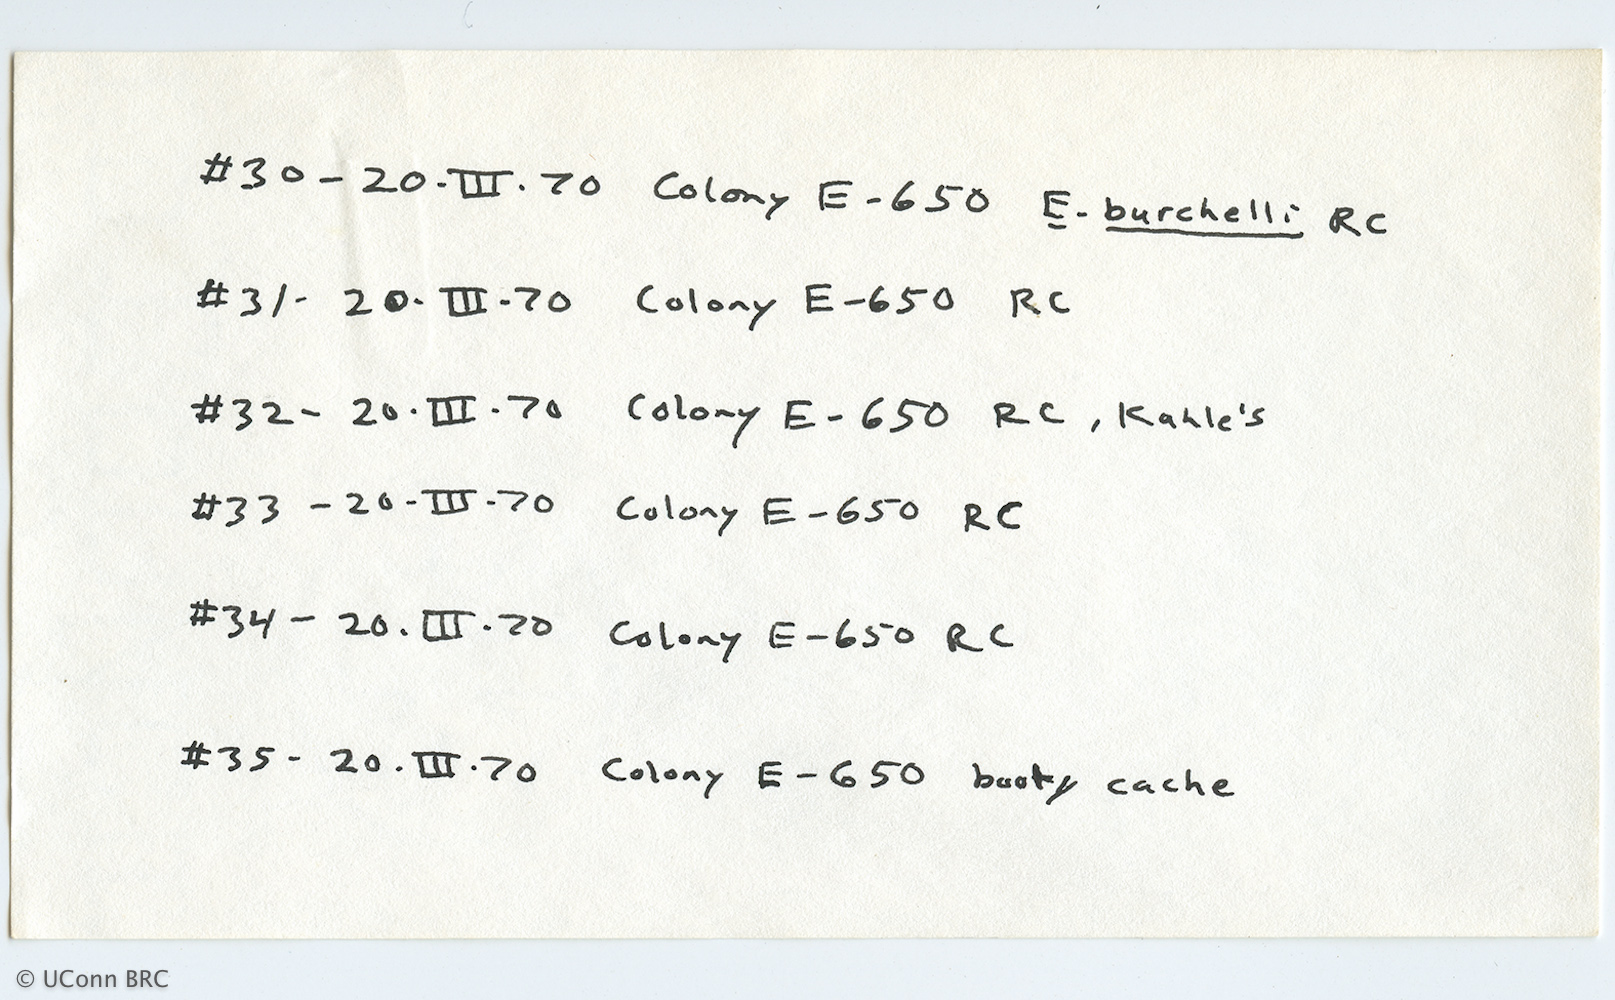 #30 - 20·III·70 Colony E-650 E. burchelli RC
#31- 20·III·70 Colony E-650 RC
#32- 20·III·70 Colony E-650 RC, Kahle's
#33 - 20·III·70 Colony E-650 RC
#34 - 20.III.70 Colony E-650 RC
#35 - 20.III.70 Colony E-650 booty cache
© UConn BRC